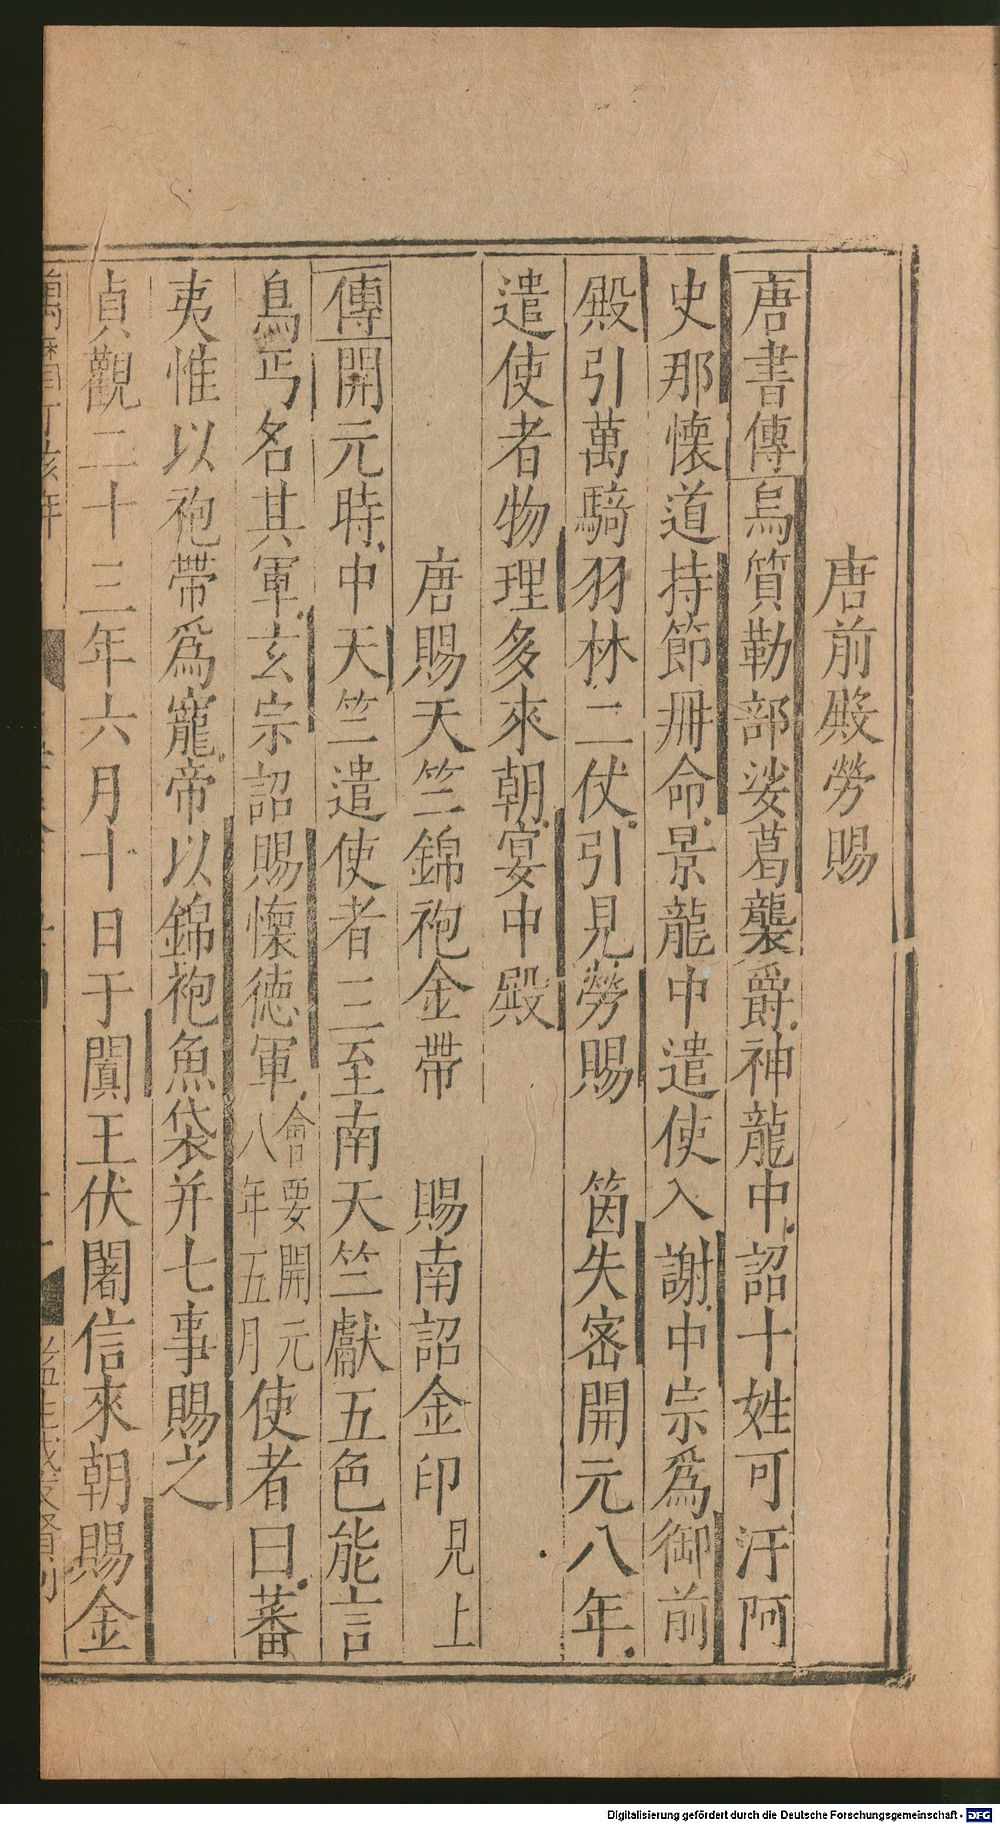 唐前殿勞賜
唐書傳烏質勒部娑葛襲爵神龍中詔十姓可汗阿
史那懷道持節冊命景龍中遣使入謝中宗爲御前
殿引萬騎羽林二仗引見勞賜　箇失密開元八年
遣使者物理多來朝宴中殿
唐賜天竺錦袍金帶　賜南詔金印見上
傳開元時中天竺遣使者三至南天竺獻五色能言
鳥丐名其軍玄宗詔賜懷德軍會要開元八年五月使者曰蕃
夷惟以袍帶爲寵帝以錦袍魚袋并七事賜之
貞觀二十三年六月十日于闐王伏闍信來朝賜金
Digitalisierung gefördert durch die Deutsche Forschungsgemeinschaft - DFG